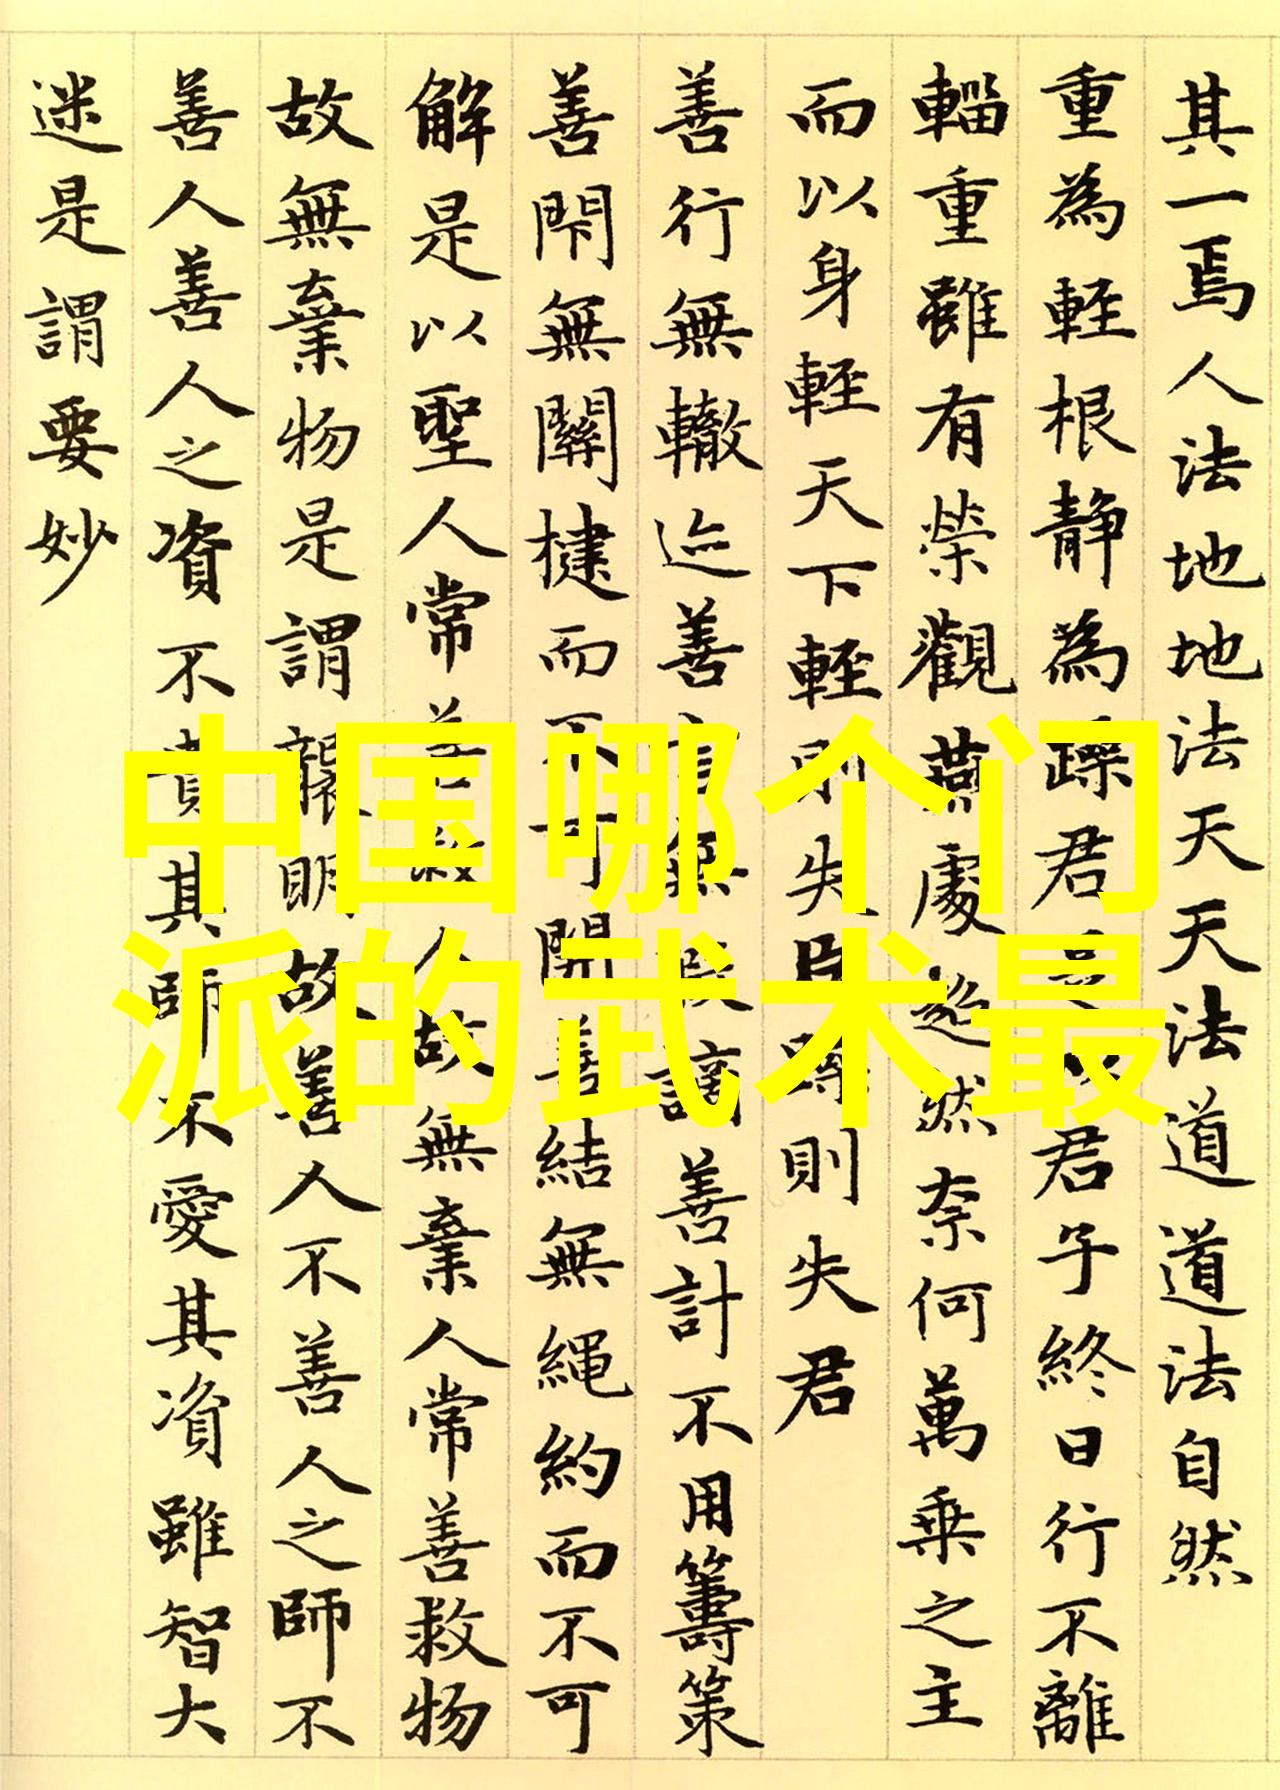 其一焉人法地地法天天法道道法自然
重為輕根静為躁君是以君子終日行不離
輜重雖有榮觀燕處超然奈何萬乗之主
而以身輕天下輕則失臣躁則失君
善行無轍迹善言無瑕謫善計不用籌策
善閇無關楗而不可開善結無繩約而不可
解是以聖人常善救人故無棄人常善救物
故無棄物是謂襲明故善人不善人之師不
善人善人之資不貴其師不愛其資雖智大
迷是謂要妙
中国哪个门
派的武术最